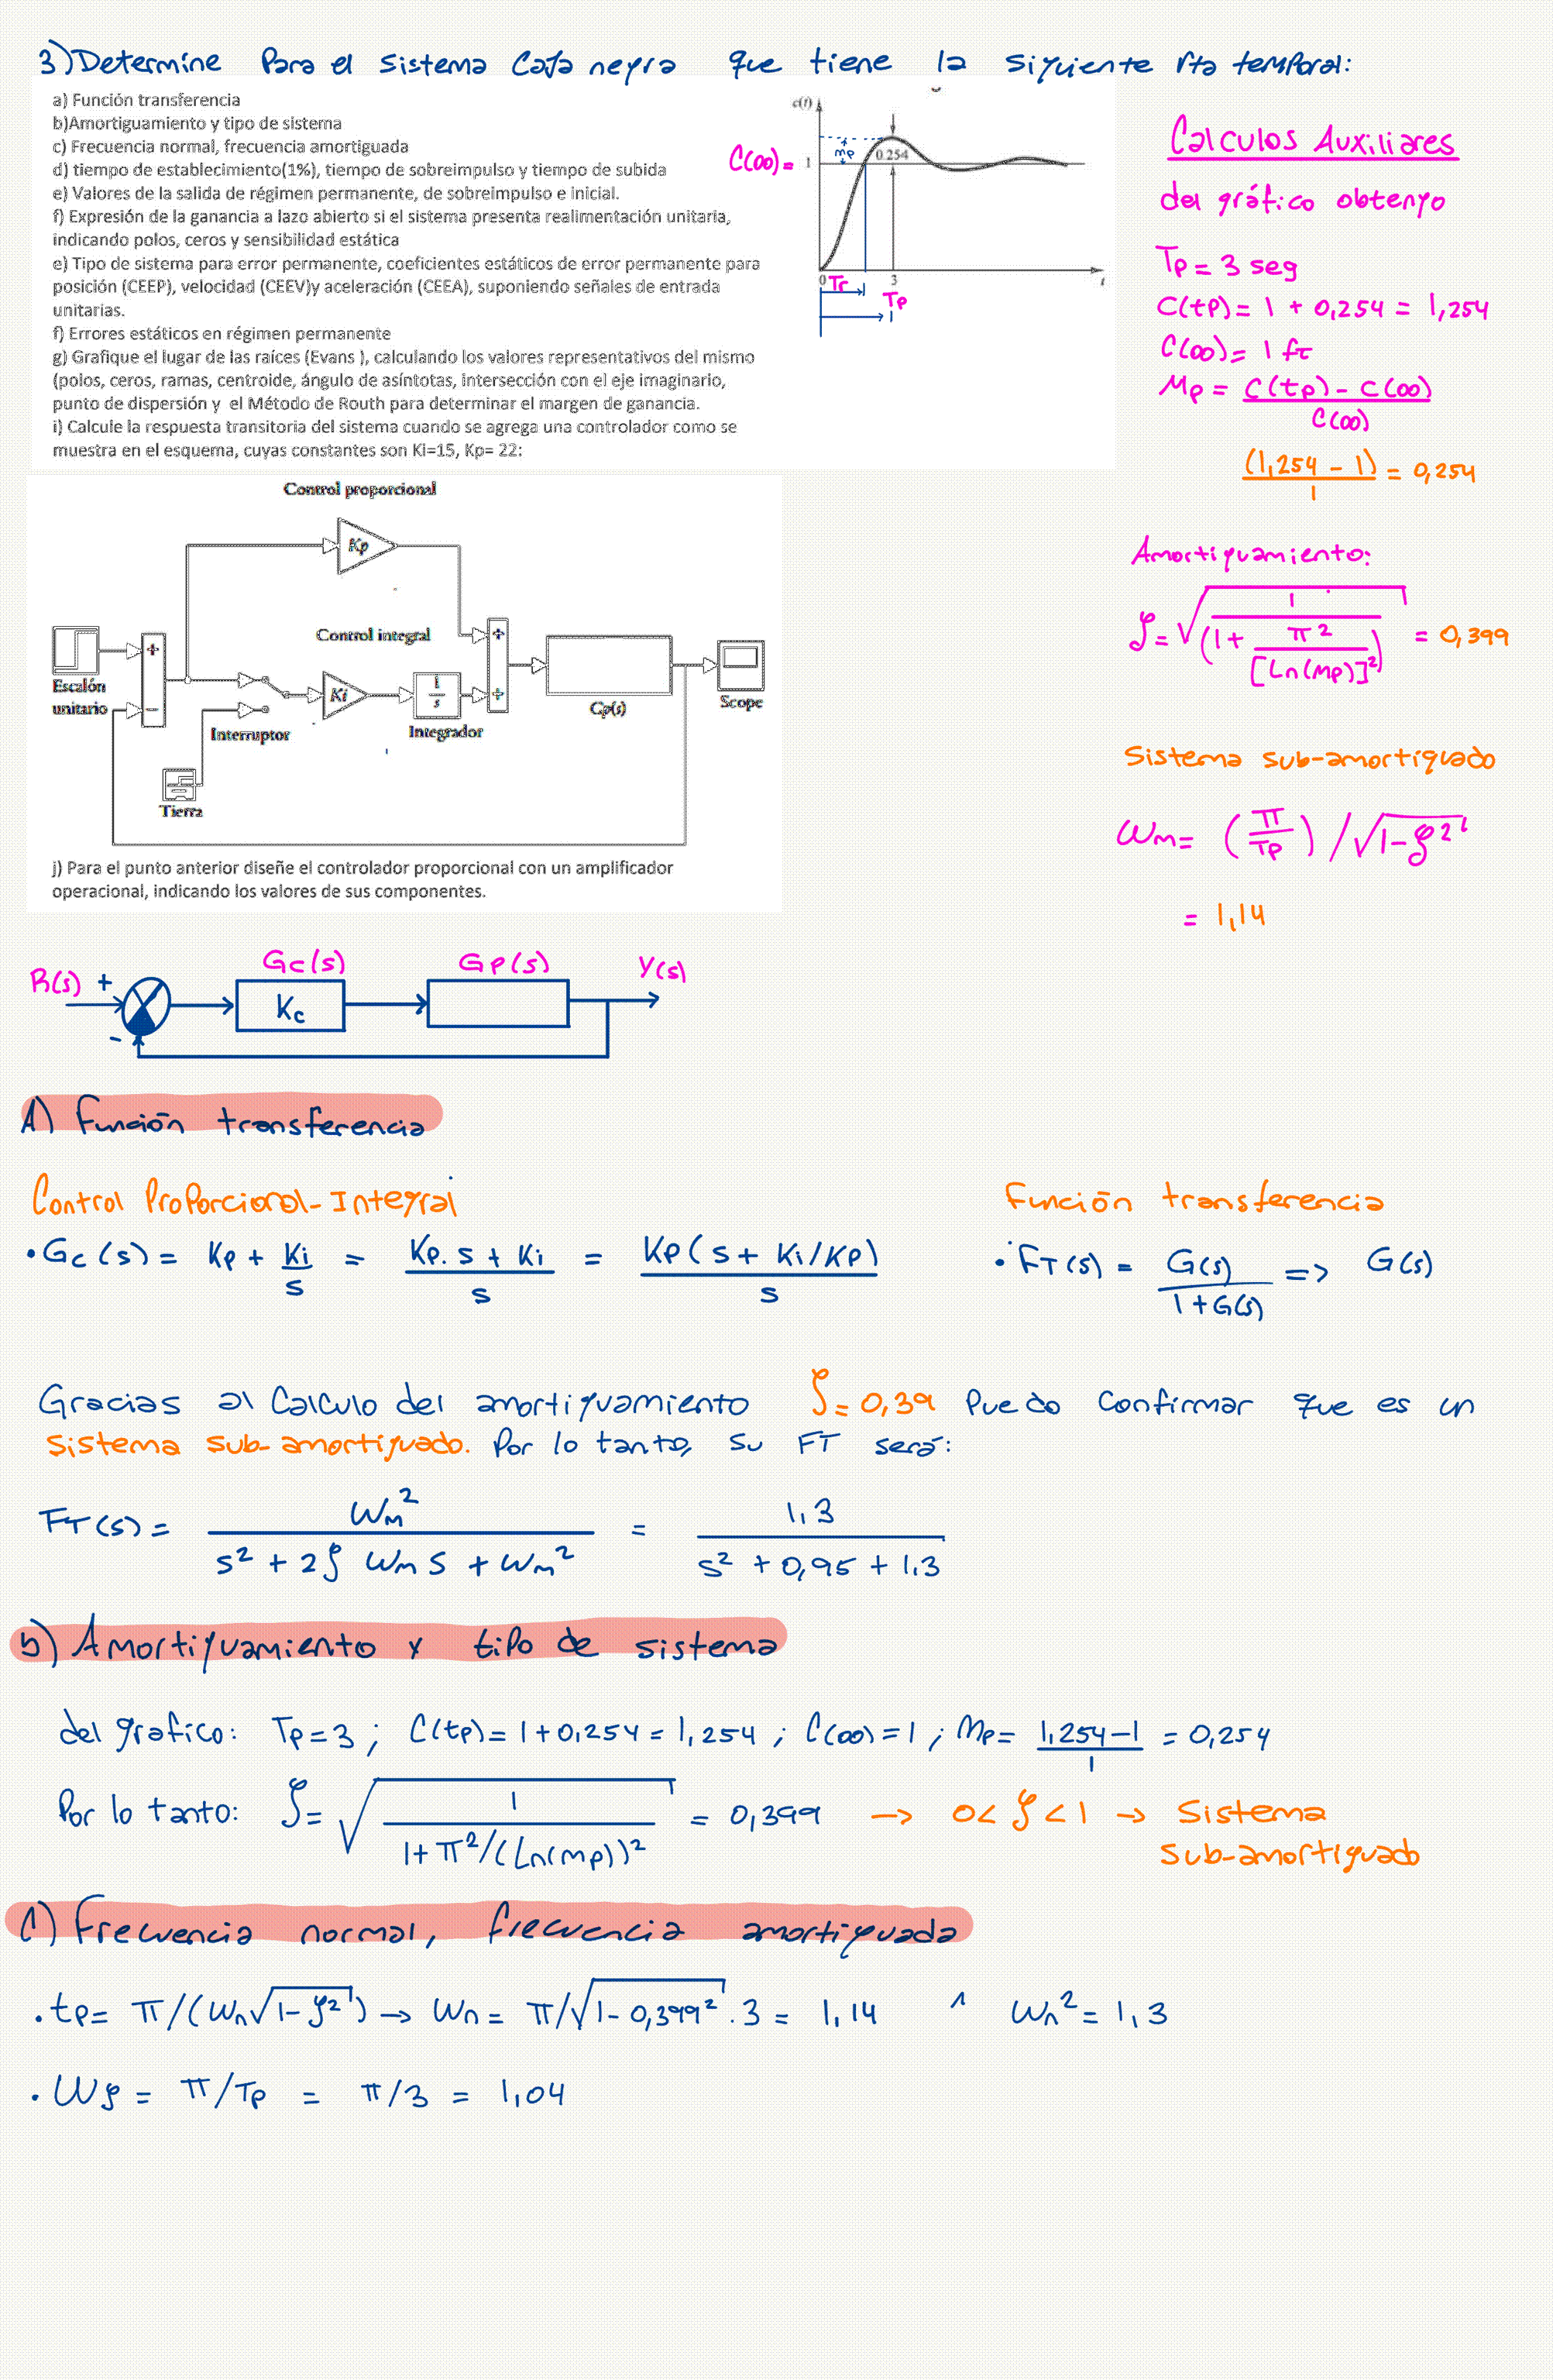 3) Determine Para el sistema Caja negra que tiene la siguiente rta temporal:
a) Función transferencia
b)Amortiguamiento y tipo de sistema
c) Frecuencia normal, frecuencia amortiguada
d) tiempo de establecimiento(1%), tiempo de sobreimpulso y tiempo de subida
e) Valores de la salida de régimen permanente, de sobreimpulso e inicial.
f) Expresión de la ganancia a lazo abierto si el sistema presenta realimentación unitaria,
indicando polos, ceros y sensibilidad estática
e) Tipo de sistema para error permanente, coeficientes estáticos de error permanente para
posición (CEEP), velocidad (CEEV)y aceleración (CEEA), suponiendo señales de entrada
unitarias.
f) Errores estáticos en régimen permanente
g) Grafique el lugar de las raíces (Evans ), calculando los valores representativos del mismo
(polos, ceros, ramas, centroide, ángulo de asíntotas, intersección con el eje imaginario,
punto de dispersión y el Método de Routh para determinar el margen de ganancia.
i) Calcule la respuesta transitoria del sistema cuando se agrega una controlador como se
muestra en el esquema, cuyas constantes son Ki=15, Kp= 22:
c(t)
C(∞)= 1
Mp
0.254
0
Tr
3
Tp
t
Calculos Auxiliares
del gráfico obtengo
Tp = 3 seg
C(tp) = 1 + 0,254 = 1,254
C(∞) = 1 ft
Mp = C(tp) - C(∞) / C(∞)
(1,254 - 1) / 1 = 0,254
Amortiguamiento:
ζ = √(1 / (1 + π² / [Ln(Mp)]²)) = 0,399
Sistema sub-amortiguado
Wn = (π/Tp) / √1-ζ²
= 1,14
Control proporcional
Kp
Control integral
+
-
Escalón
unitario
Interruptor
Ki
1/s
Integrador
+
+
Cp(s)
Scope
Tierra
j) Para el punto anterior diseñe el controlador proporcional con un amplificador
operacional, indicando los valores de sus componentes.
R(s) + - Gc(s) Kc Gp(s) Y(s)
A) Función transferencia
Control Proporcional-Integral
• Gc(s) = Kp + Ki/s = Kp.s + Ki / s = Kp(s + Ki/Kp) / s
Función transferencia
• FT(s) = G(s) / 1+G(s) => G(s)
Gracias al Calculo del amortiguamiento ζ = 0,39 Puedo Confirmar que es un
sistema sub-amortiguado. Por lo tanto, su FT será:
FT(s) = Wn² / s² + 2ζ Wn s + Wn² = 1,3 / s² + 0,9s + 1,3
b) Amortiguamiento y tipo de sistema
del grafico: Tp=3 ; C(tp)=1+0,254=1,254 ; C(∞)=1 ; Mp= 1,254-1 / 1 = 0,254
Por lo tanto: ζ = √(1 / 1+π²/(Ln(Mp))²) = 0,399 → 0<ζ<1 → Sistema
sub-amortiguado
C) Frecuencia normal, frecuencia amortiguada
• tp = π/(Wn√1-ζ²) → Wn = π/√1-0,399² . 3 = 1,14 ^ Wn² = 1,3
• Wζ = π/Tp = π/3 = 1,04